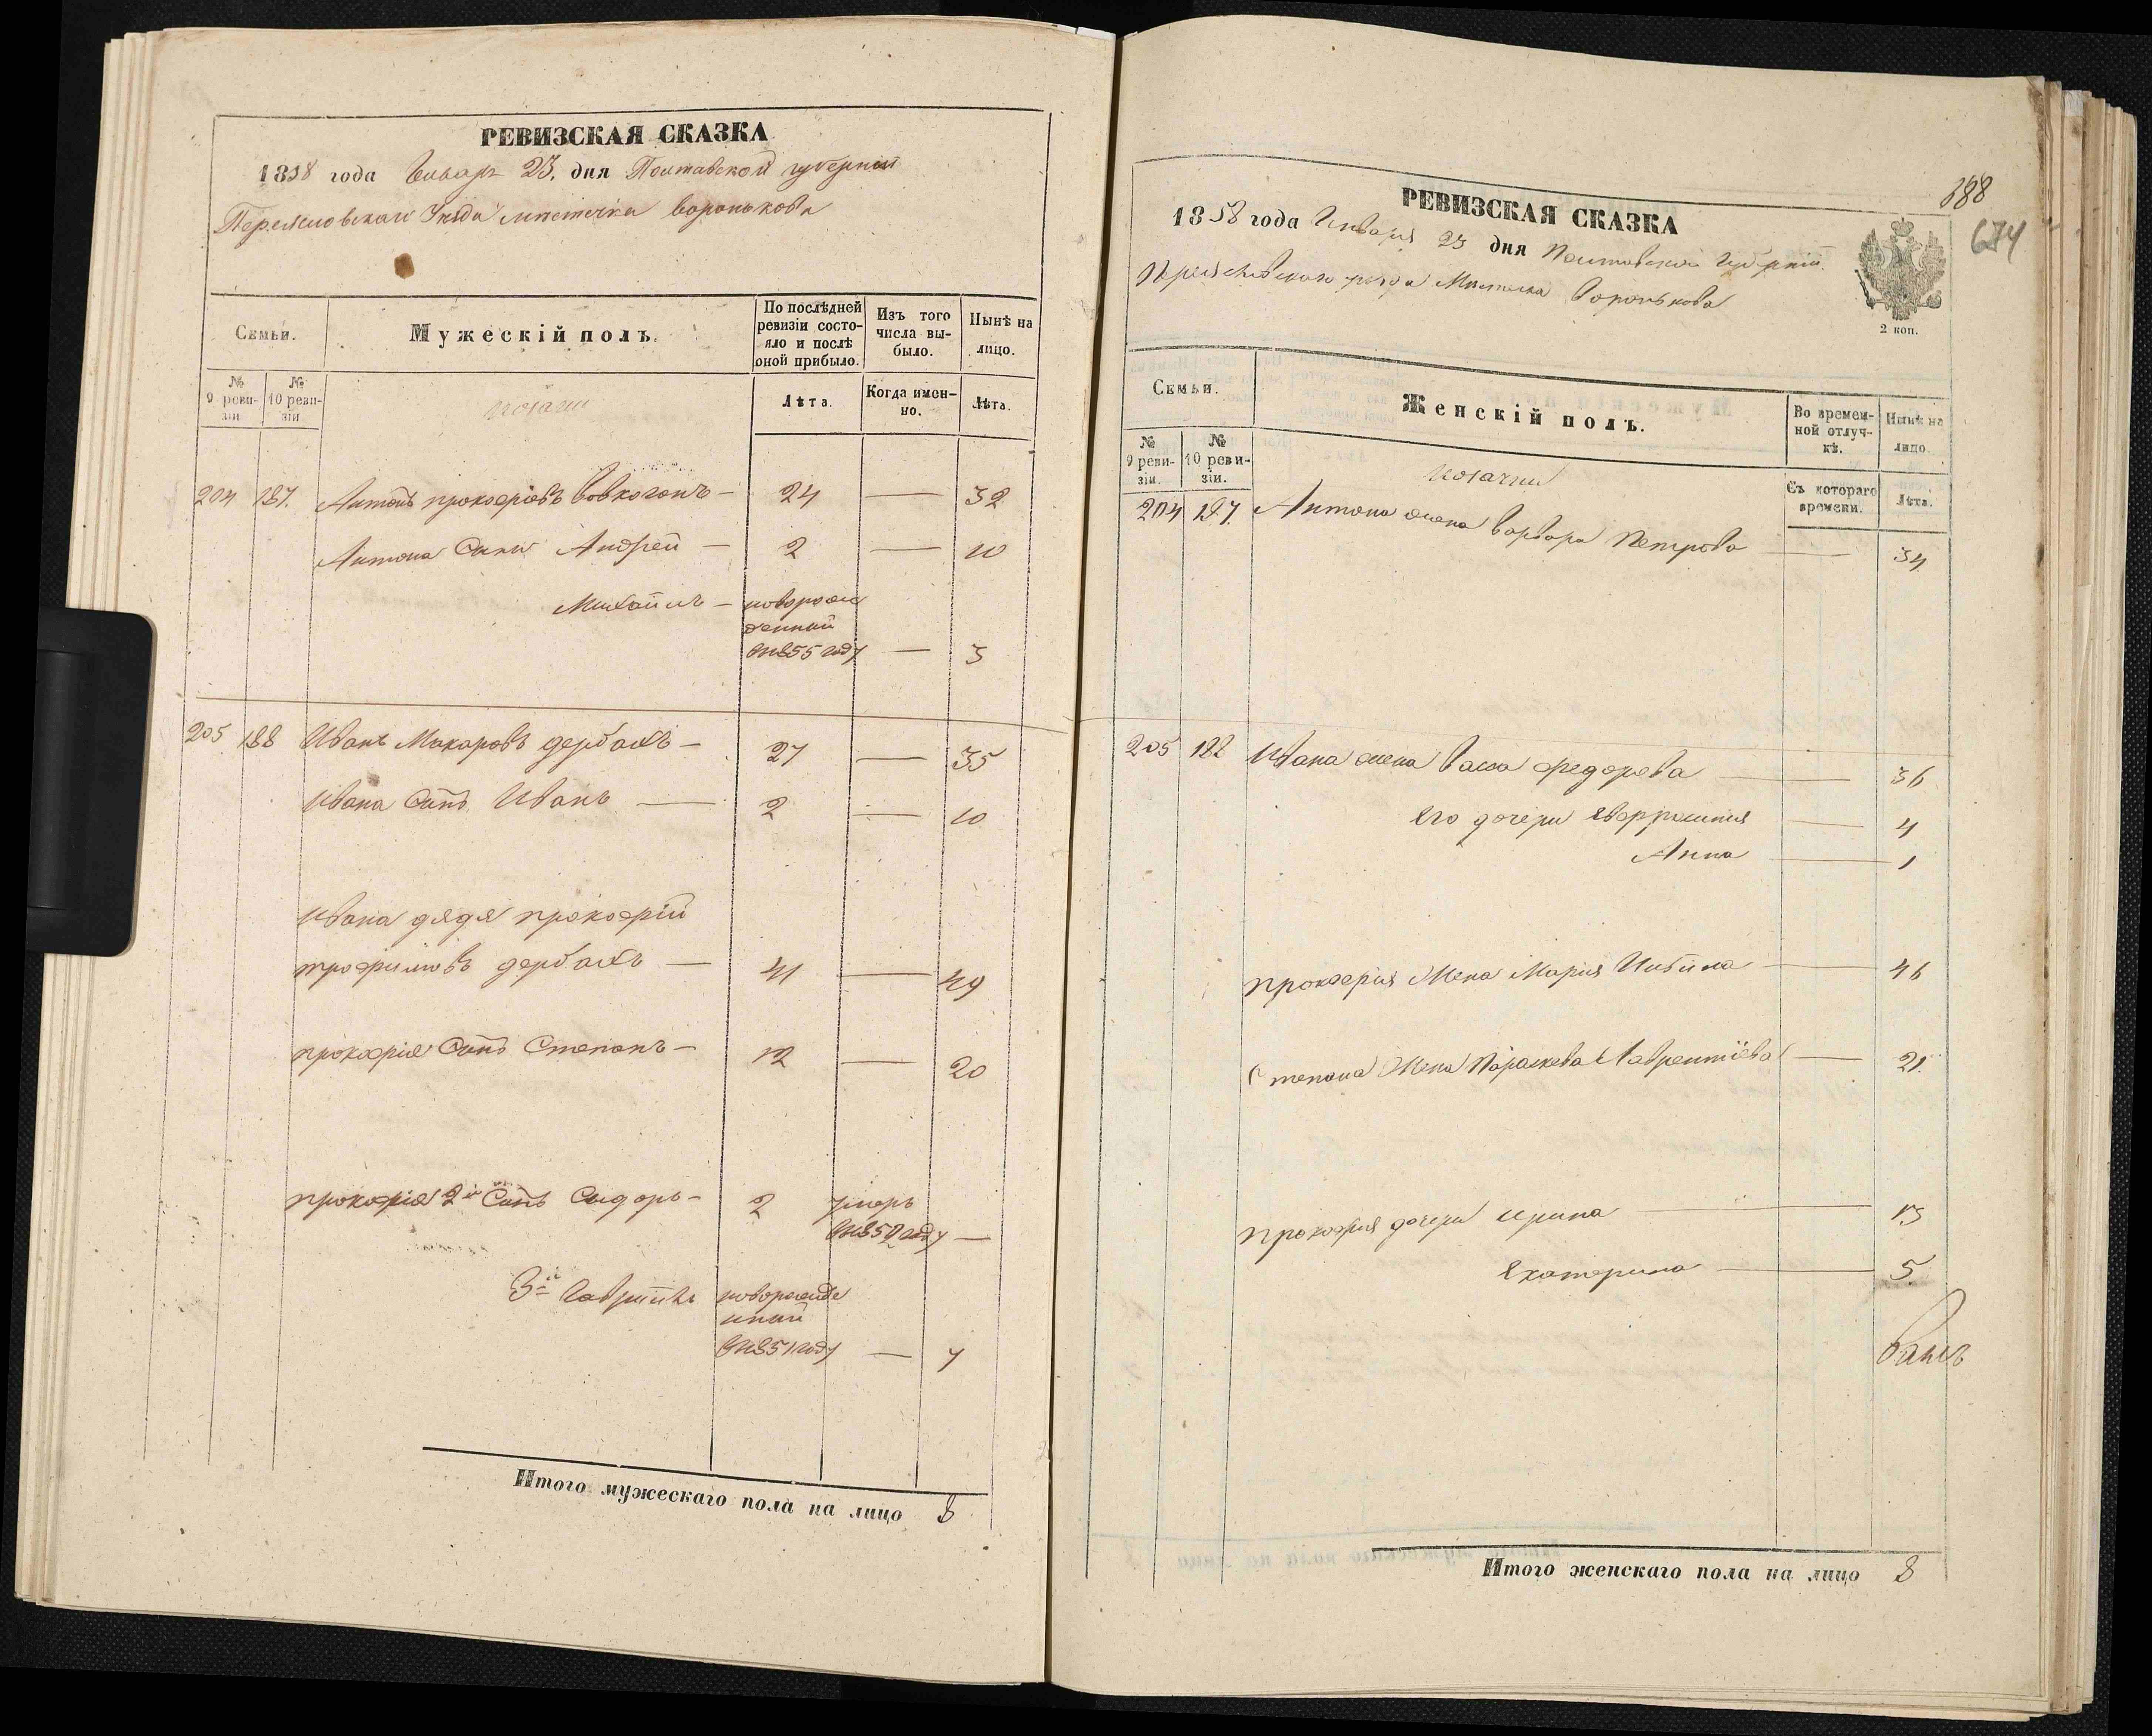 РЕВИЗСКАЯ СКАЗКА
1858 года Январ 23. дня Полтавской губерніи
Переясловскаго Уезда местечка Воронькова
Семьи.
Мужескій полъ.
По послѣдней ревизіи состояло и послѣ оной прибыло.
Изъ того числа выбыло.
Нынѣ на лицо.
№ 9 ревизіи
№ 10 ревизіи
козачки
Лѣта.
Когда именно.
Лѣта.
204 187. Антонъ прокофіевъ Вовкогонъ — 24 — 32
Антона Сыны Андрей — 2 — 10
Михаилъ — новорож
денный
въ 1855 году — 3
205 188 Иванъ Макаровъ дербахъ — 27 — 35
Ивана Сынъ Иванъ — 2 — 10
Ивана дядя прокофій
трофимовъ дербахъ — 41 — 49
прокофія Сынъ Степанъ — 12 — 20
прокофія 2й Сынъ Сидоръ — 2 умеръ
въ 1852 году —
3й Гавриилъ новорожде
нный
въ 1851 году — 7
Итого мужескаго пола на лицо 8
388
674
РЕВИЗСКАЯ СКАЗКА
1858 года Января 23 дня Полтавской Губерніи
Переяславскаго уезда Местечка Воронькова
2 коп.
Семьи.
Женскій полъ.
Во временной отлучкѣ.
Нынѣ на лицо.
№ 9 ревизіи.
№ 10 ревизіи.
козачки
Съ котораго времени.
Лѣта.
204 187. Антона жена Варвара Петрова — 34
205 188 Ивана жена Васса федорова — 36
Его дочери Евфросинія — 4
Анна — 1
прокофія Жена Марія — 46
Степана Жена Параскева Лаврентіева — 21.
Прокофія дочери Ирина — 13
Екатерина — 5.
Итого женскаго пола на лицо 8